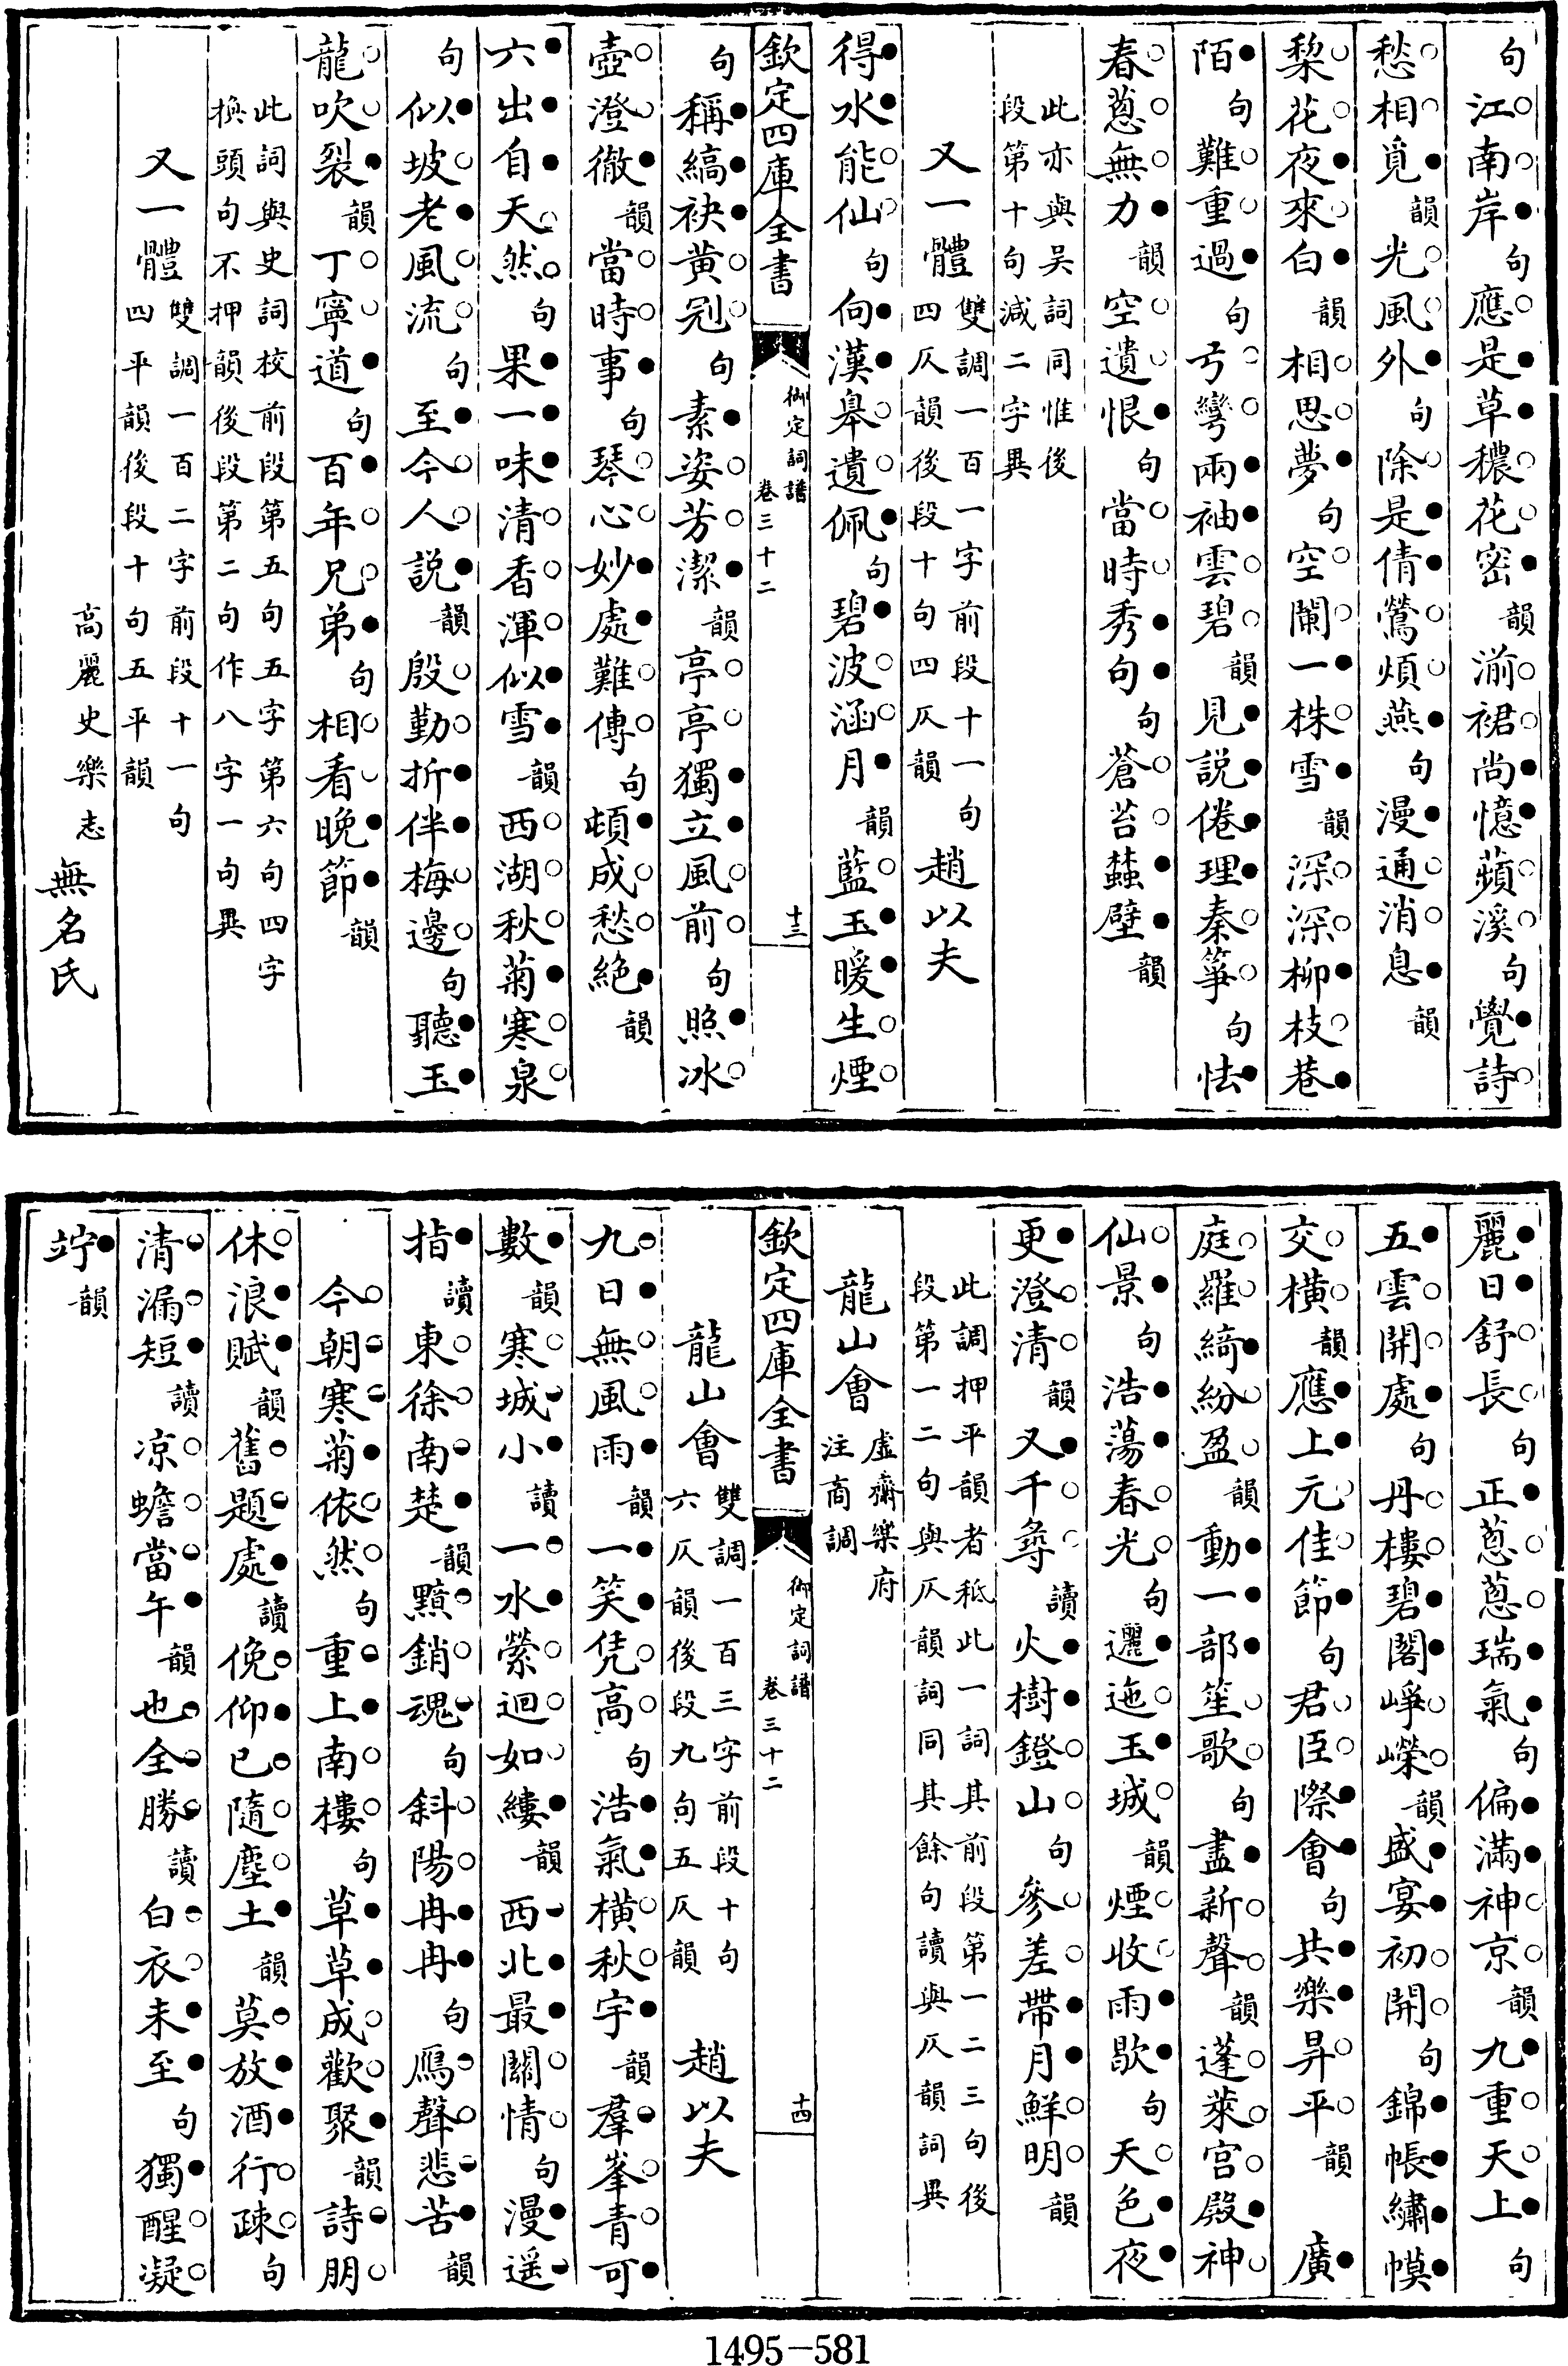 句江南岸句應是草穠花密韻湔裙尚憶蘋溪句覺詩
愁相覓韻光風外句除是倩鶯煩燕句漫通消息韻
梨花夜來白韻相思夢句空闌一株雪韻深深柳枝巷
陌句難重過句亏彎兩袖雲碧韻見説倦理秦箏句怯
春蔥無力韻空遺恨句當時秀句句蒼苔蠧壁韻
此亦與吴詞同惟後
段第十句減二字異
又一體雙調一百一字前段十一句
四仄韻後段十句四仄韻趙以夫
得水能仙句向漢皋遺佩句碧波涵月韻藍玉暖生煙
欽定四庫全書
御定詞譜
卷三十二
十三
句稱縞袂黄冠句素姿芳潔韻亭亭獨立風前句照冰
壺澄徹韻當時事句琴心妙處難傳句頓成愁絶韻
六出自天然句果一味清香渾似雪韻西湖秋菊寒泉
句似坡老風流句至今人説韻殷勤折伴梅邊句聽玉
龍吹裂韻丁寧道句百年兄弟句相看晚節韻
此詞與史詞校前段第五句五字第六句四字
換頭句不押韻後段第二句作八字一句異
又一體雙調一百二字前段十一句
四平韻後段十句五平韻
高麗史樂志無名氏
麗日舒長句正蔥蔥瑞氣句偏滿神京韻九重天上句
五雲開處句丹樓碧閣崢嶸韻盛宴初開句錦帳繡幙
交横韻應上元佳節句君臣際會句共樂昇平韻廣
庭羅綺紛盈韻動一部笙歌句盡新聲韻蓬萊宫殿神
仙景句浩蕩春光句邐迤玉城韻煙收雨歇句天色夜
更澄清韻又千尋讀火樹鐙山句參差帶月鮮明韻
此調押平韻者秪此一詞其前段第一二三句後
段第一二句與仄韻詞同其餘句讀與仄韻詞異
龍山會虚齋樂府
注商調
欽定四庫全書
御定詞譜
卷三十二
十四
龍山會雙調一百三字前段十句
六仄韻後段九句五仄韻趙以夫
九日無風雨韻一笑凭高句浩氣横秋宇韻羣峯青可
數韻寒城小讀一水縈迴如縷韻西北最關情句漫遥
指讀東徐南楚韻黯銷魂句斜陽冉冉句鴈聲悲苦韻
今朝寒菊依然句重上南樓句草草成歡聚韻詩朋
休浪賦韻舊題處讀俛仰已隨塵土韻莫放酒行疎句
清漏短讀凉蟾當午韻也全勝讀白衣未至句獨醒凝
竚韻
1495-581